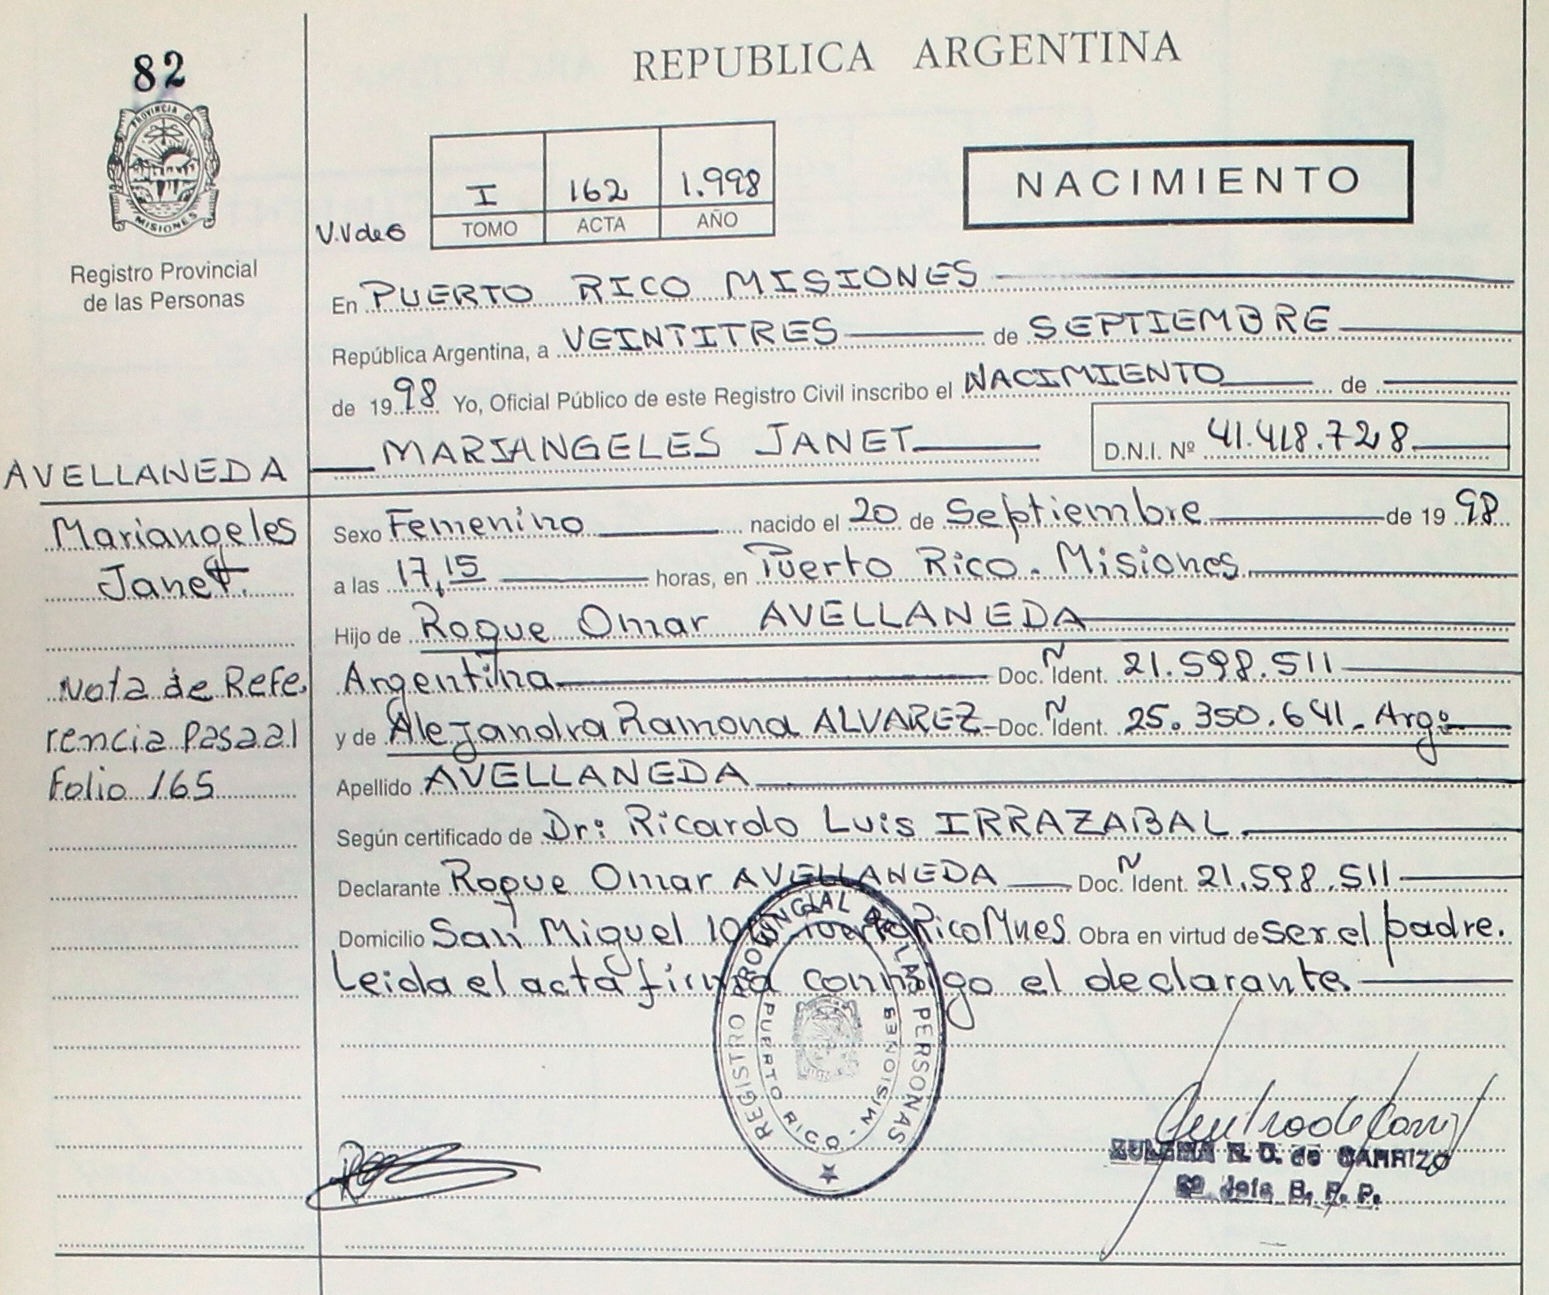 82
REPUBLICA ARGENTINA
PROVINCIA D
MISIONES
Registro Provincial
de las Personas
I 162 1.998
V.V de 6 TOMO ACTA AÑO
NACIMIENTO
En PUERTO RICO MISIONES
República Argentina, a VEINTITRES de SEPTIEMBRE
de 1998 Yo, Oficial Público de este Registro Civil inscribo el NACIMIENTO de
MARIANGELES JANET D.N.I. Nº 41.418.728
AVELLANEDA
Mariangeles
Janet.
Nota de Refe.
rencia Pasa al
Folio 165
Sexo Femenino nacido el 20 de Septiembre de 1998
a las 17,15 horas, en Puerto Rico. Misiones
Hijo de Roque Omar AVELLANEDA
Argentina Doc. Ident. 21.598.511
y de Alejandra Ramona ALVAREZ Doc. Ident. 25.350.641. Arg.
Apellido AVELLANEDA
Según certificado de Dr: Ricardo Luis IRRAZABAL
Declarante Roque Omar AVELLANEDA Doc. Ident. 21.598.511
Domicilio San Miguel Puerto Rico Mnes Obra en virtud de ser el padre.
Leida el acta firma conmigo el declarante
REGISTRO PROVINCIAL DE LAS PERSONAS
PUERTO RICO - MISIONES
ZULEMA N. D. de CARRIZO
Jefe R. P. P.